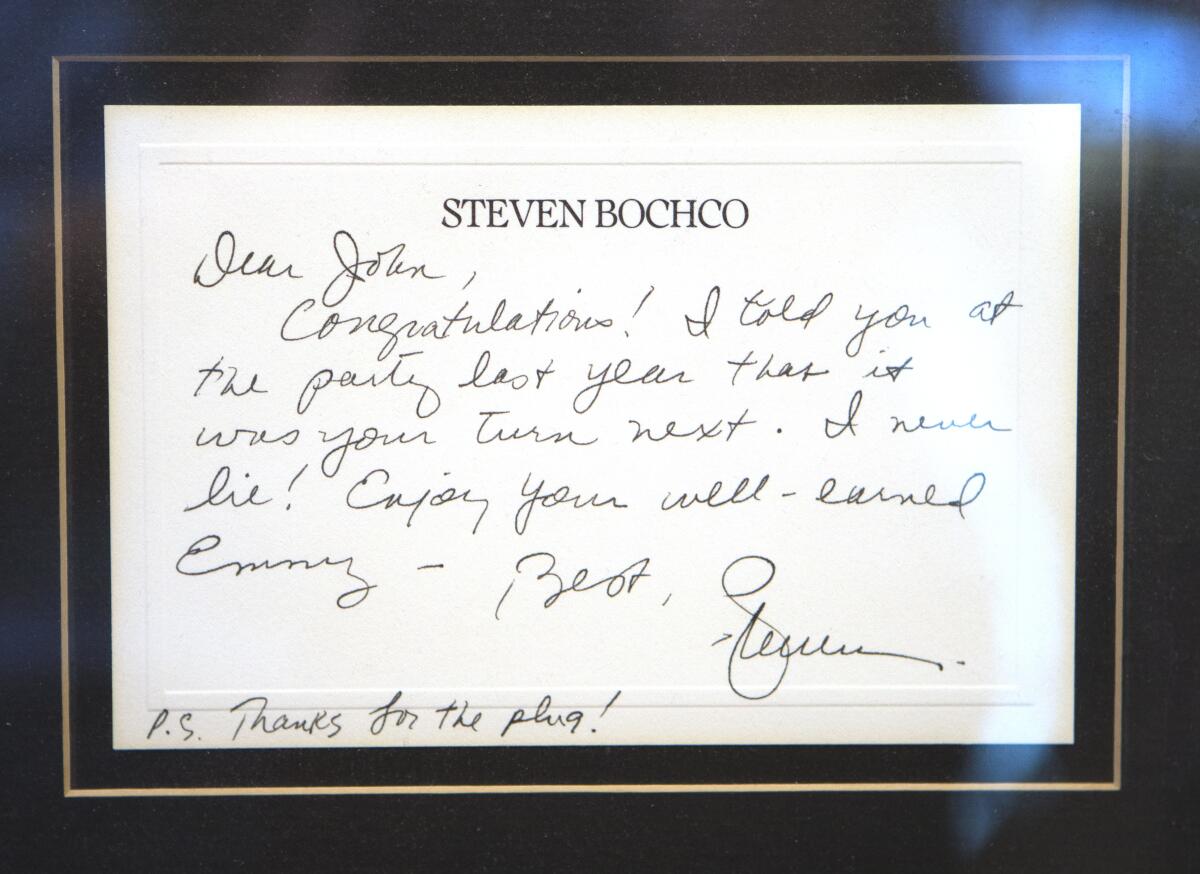 STEVEN BOCHCO
Dear John,
Congratulations! I told you at
the party last year that it
was your turn next. I never
lie! Enjoy your well-earned
Emmy - Best, Steven
P.S. Thanks for the plug!